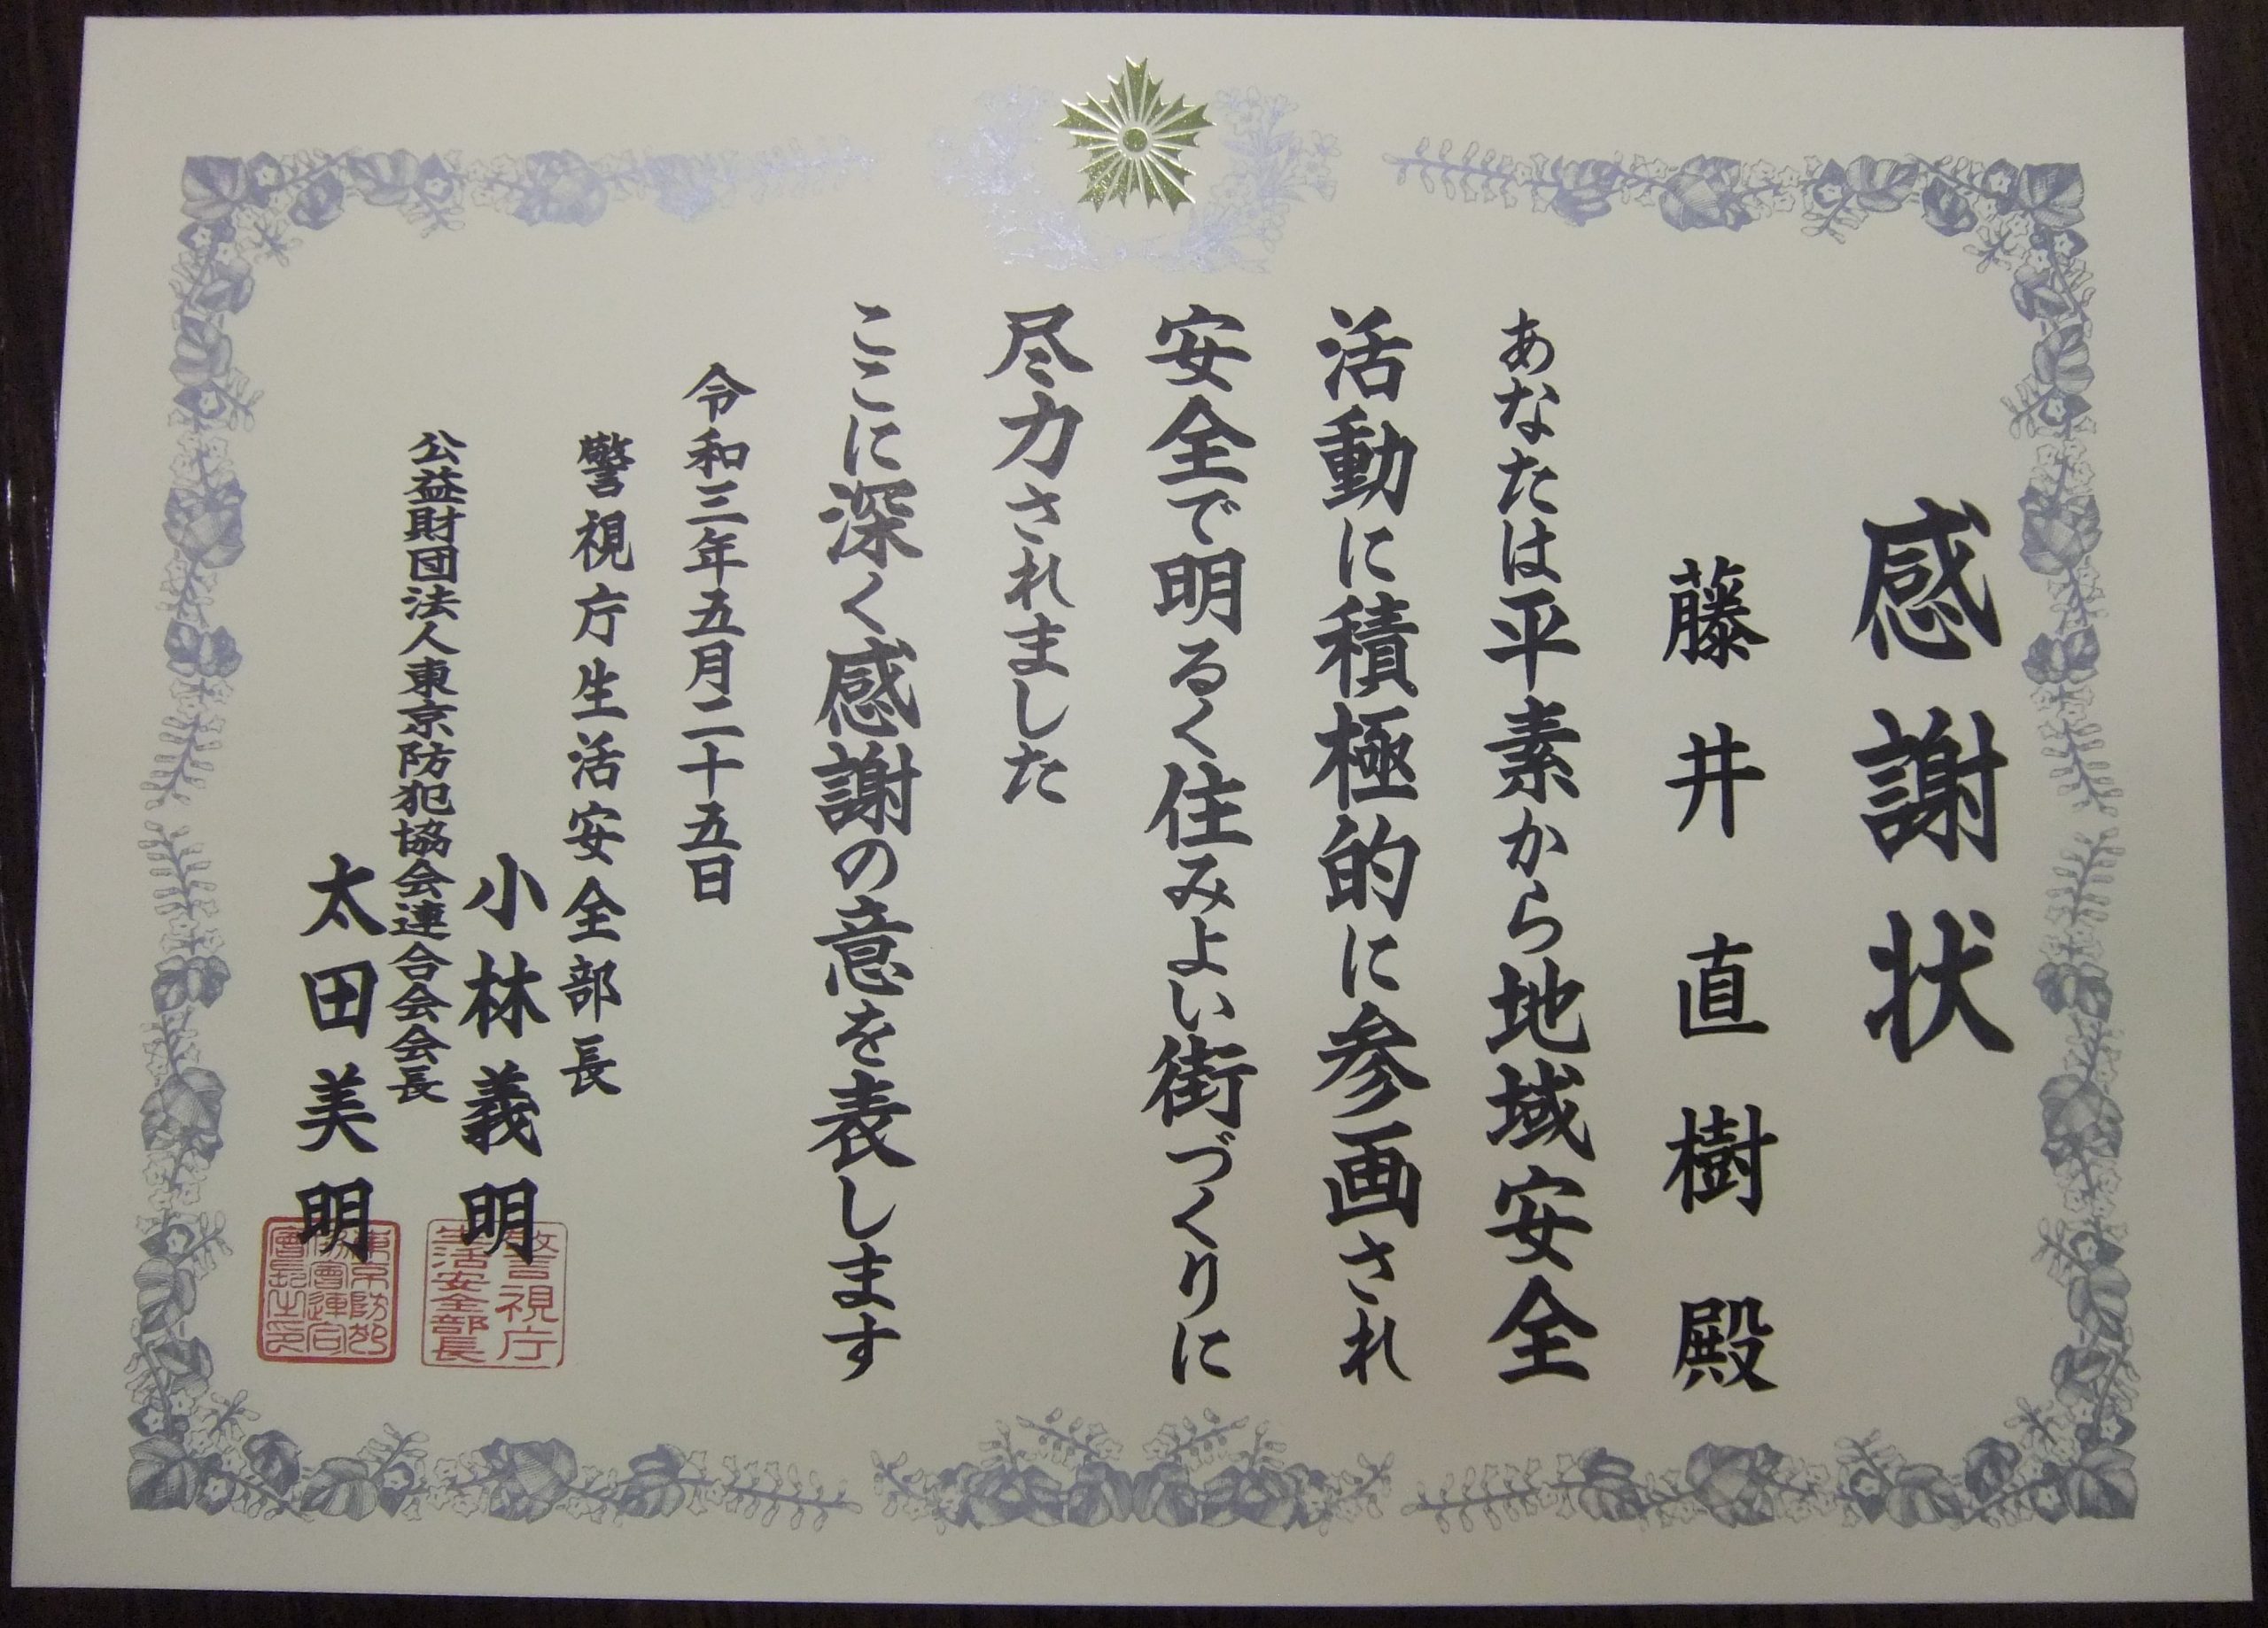 感謝状
藤井直樹殿
あなたは平素から地域安全
活動に積極的に参画され
安全で明るく住みよい街づくりに
尽力されました
ここに深く感謝の意を表します
令和三年五月二十五日
警視庁生活安全部長
小林義明
警視庁
生活安全部長
公益財団法人東京防犯協会連合会会長
太田美明
東京防犯
協會連合
會長之印